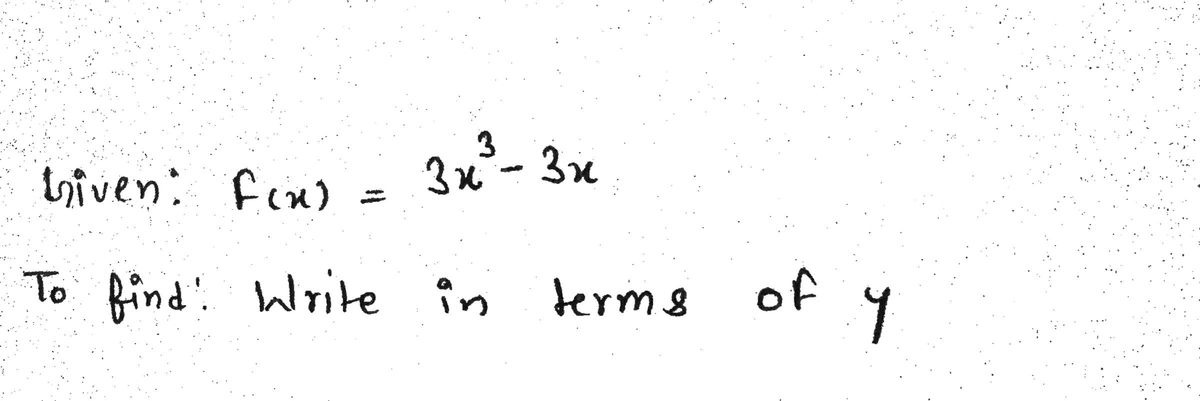 Given: f(x) = 3x³ - 3x
To find: Write in terms of y